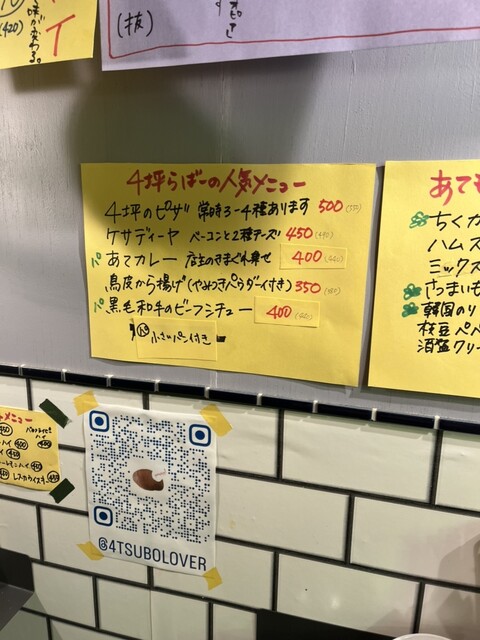 (420)
味が変わる。
(抜)
4坪らばーの人気メニュー
4坪のピザ 常時3〜4種あります 500 (550)
ケサディーヤ ベーコンと2種チーズ 450 (490)
パ あてカレー 店主のきまぐれ乗せ 400 (440)
鳥皮から揚げ(やみつきパウダー付き) 350 (380)
パ 黒毛和牛のビーフシチュー 400 (440)
パ 小さいパン付き
あても
ちくか
ハムス
ミックス
さつまいも
韓国のり
枝豆ペペ
酒盗クリー
メニュー
@4TSUBOLOVER